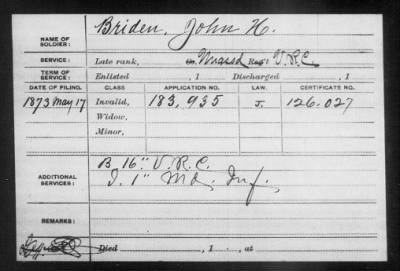 NAME OF SOLDIER: Briden, John H.
SERVICE: Late rank, Unasgd Reg't V.R.C.
TERM OF SERVICE: Enlisted , 1 Discharged , 1
DATE OF FILING. CLASS APPLICATION NO. LAW. CERTIFICATE NO.
1873 May 17 Invalid, 183,935 J. 126.027
Widow,
Minor,
ADDITIONAL SERVICES: B 16" V.R.C.
I. 1" Md. Inf.
REMARKS:
Died , 1 , at